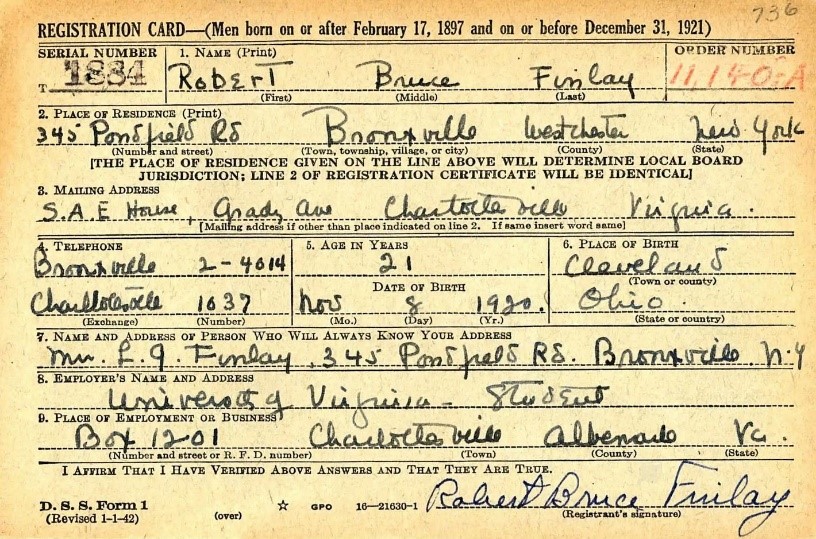 736
REGISTRATION CARD—(Men born on or after February 17, 1897 and on or before December 31, 1921)
SERIAL NUMBER
T 1834
1. NAME (Print)
ROBERT Bruce Finlay
(First) (Middle) (Last)
ORDER NUMBER
11,140-A
2. PLACE OF RESIDENCE (Print)
345 Pondfield Rd Bronxville Westchester New York
(Number and street) (Town, township, village, or city) (County) (State)
[THE PLACE OF RESIDENCE GIVEN ON THE LINE ABOVE WILL DETERMINE LOCAL BOARD
JURISDICTION; LINE 2 OF REGISTRATION CERTIFICATE WILL BE IDENTICAL]
3. MAILING ADDRESS
S.A.E House, Grady Ave Charlottesville Virginia.
[Mailing address if other than place indicated on line 2. If same insert word same]
4. TELEPHONE
Bronxville 2-4014
Charlottesville 1037
(Exchange) (Number)
5. AGE IN YEARS
21
DATE OF BIRTH
Nov 8 1920.
(Mo.) (Day) (Yr.)
6. PLACE OF BIRTH
Cleveland
(Town or county)
Ohio
(State or country)
7. NAME AND ADDRESS OF PERSON WHO WILL ALWAYS KNOW YOUR ADDRESS
L. G. Finlay, 345 Pondfield Rd. Bronxville. N.Y
8. EMPLOYER'S NAME AND ADDRESS
University of Virginia - Student
9. PLACE OF EMPLOYMENT OR BUSINESS
Box 1201 Charlottesville Albemarle Va.
(Number and street or R. F. D. number) (Town) (County) (State)
I AFFIRM THAT I HAVE VERIFIED ABOVE ANSWERS AND THAT THEY ARE TRUE.
D. S. S. Form 1
(Revised 1-1-42)
(over)
☆ GPO 16—21630-1
Robert Bruce Finlay
(Registrant's signature)